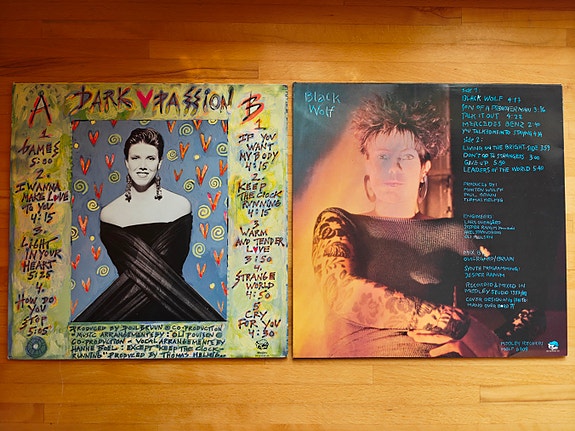 A DARK PASSION B
1
GAMES
5:00
2
I WANNA
MAKE LOVE
TO YOU
4:15
3
LIGHT
IN YOUR
HEART
5:25
4
HOW DO
YOU
STOP
5:05
1
IF YOU
WANT
MY BODY
4:15
2
KEEP
THE CLOCK
RUNNING
4:15
3
WARM
AND TENDER
LOVE
4:50
4.
STRANGE
WORLD
4:50
5
CRY
FOR YOU
4:30
PRODUCED BY POUL BRUUN @ CO-PRODUCTION
+ MUSIC ARRANGEMENTS BY: OLI POULSEN @
CO-PRODUCTION + VOCAL ARRANGEMENTS BY
HANNE BOEL: EXCEPT "KEEP THE CLOCK
RUNNING" PRODUCED BY THOMAS HELMIG
Black
Wolf
Side 1:
BLACK WOLF 4:13
SON OF A PREACHER MAN 3:16
TALK IT OUT 4:22
MERCEDES BENZ
Side 2:
LIVING ON THE BRIGHT SIDE
DON'T GO TO STRANGERS 3:00
GIVE UP 5:50
LEADERS OF THE WORLD 5:40
PRODUCED BY:
POUL BRUUN
THOMAS HELMIG
ENGINEERS:
SYNTH PROGRAMMING:
JESPER RANUM
RECORDED & MIXED IN
MEDLEY STUDIO
MEDLEY RECORDS